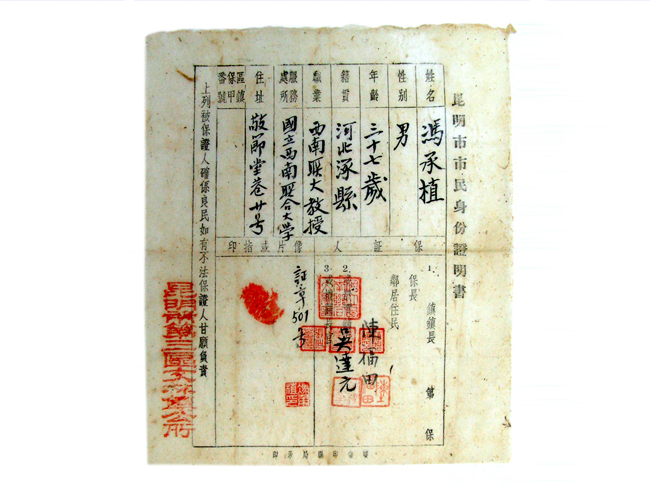 昆明市市民身份證明書
姓名
馮承植
性別
男
年齡
三十七歲
籍貫
河北涿縣
職業
西南聯大教授
服務處所
國立西南聯合大學
住址
敬節堂巷廿号
區鎮保甲番號
保證人
像片或指印
1.
鎮鎮長
第 保
保長
鄰居住民
2.
陳福田
吳達元
3.
訂章501号
上列被保證人確係良民如有不法保證人甘願負責